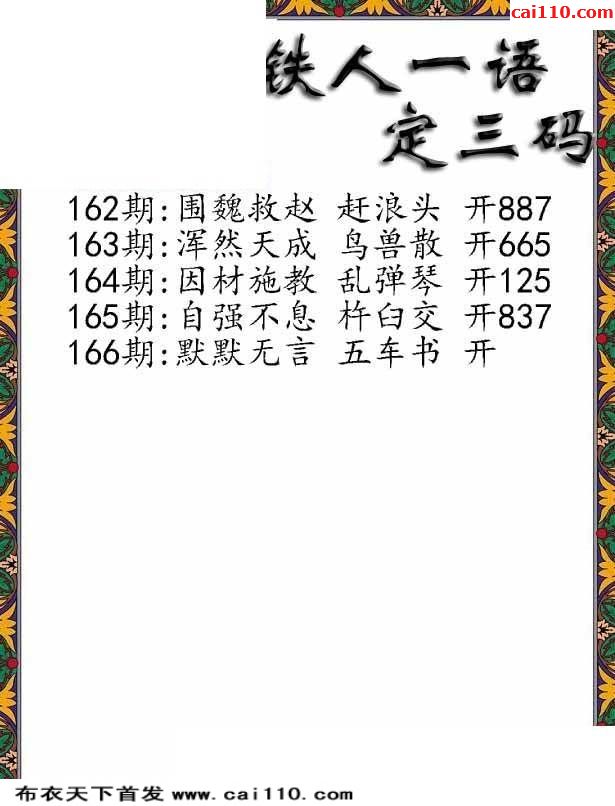 cai110.com
铁人一语
定三码
162期:围魏救赵 赶浪头 开887
163期:浑然天成 鸟兽散 开665
164期:因材施教 乱弹琴 开125
165期:自强不息 杵臼交 开837
166期:默默无言 五车书 开
布衣天下首发 www.cai110.com